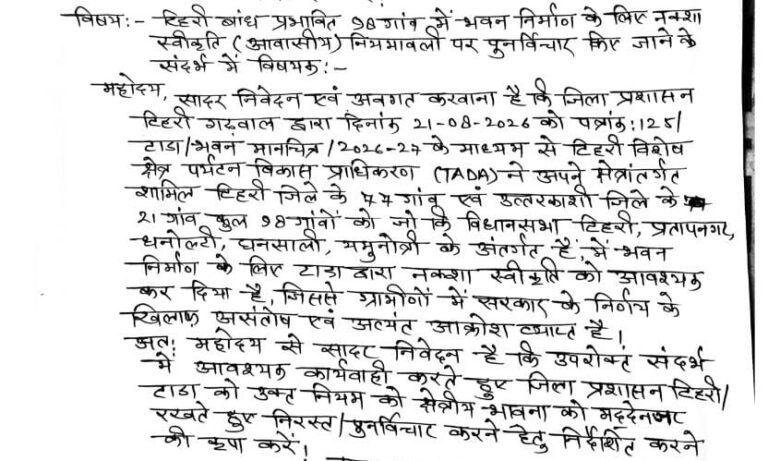 विषय:- टिहरी बांध प्रभावित 98 गांव में भवन निर्माण के लिए नक्शा
स्वीकृति (आवासीय) नियमावली पर पुनर्विचार किए जाने के
संदर्भ में विषयक:-
महोदय,
सादर निवेदन एवं अवगत करवाना है कि जिला प्रशासन
टिहरी गढ़वाल द्वारा दिनांक 21-08-2026 को पत्रांक:125/
टाडा/भवन मानचित्र/2026-27 के माध्यम से टिहरी विशेष
क्षेत्र पर्यटन विकास प्राधिकरण (TADA) ने अपने क्षेत्रांतर्गत
शामिल टिहरी जिले के 77 गांव एवं उत्तरकाशी जिले के
21 गांव कुल 98 गांवों को जो कि विधानसभा टिहरी, प्रतापनगर,
धनोल्टी, घनसाली, यमुनोत्री के अंतर्गत है, में भवन
निर्माण के लिए टाडा द्वारा नक्शा स्वीकृति को आवश्यक
कर दिया है, जिससे ग्रामीणों में सरकार के निर्णय के
खिलाफ असंतोष एवं अत्यंत आक्रोश व्याप्त है।
अत: महोदय से सादर निवेदन है कि उपरोक्त संदर्भ
में आवश्यक कार्यवाही करते हुए जिला प्रशासन टिहरी/
टाडा को उक्त नियम को क्षेत्रीय भावना को मद्देनजर
रखते हुए निरस्त/पुनर्विचार करने हेतु निर्देशित करने
की कृपा करें।